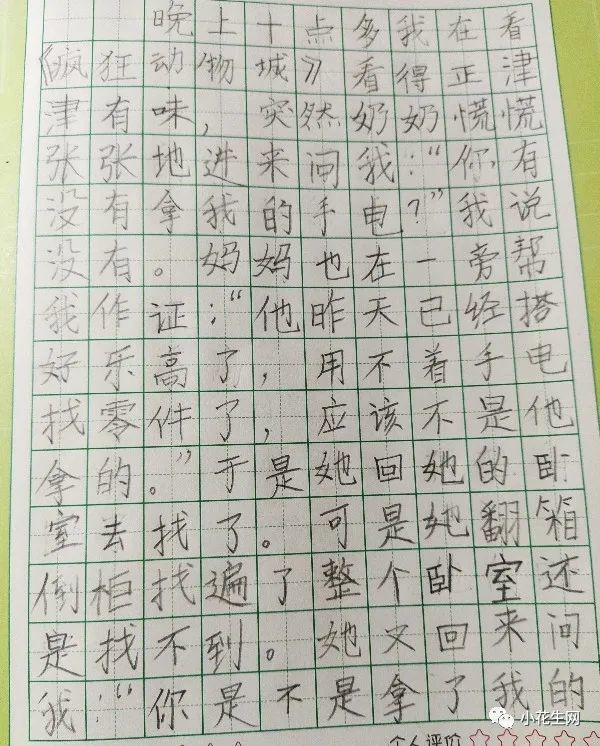 晚上十点多我在看
《疯狂动物城》看得正津
津有味，突然奶奶慌慌
张张地进来问我：“你有
没有拿我的手电？”我说
没有。妈妈也在一旁帮
我作证：“他昨天已经搭
好乐高了，用不着手电
找零件了，应该不是他
拿的。”于是她回她的卧
室去找了。可是她翻箱
倒柜找遍了整个卧室还
是找不到。她又回来问
我：“你是不是拿了我的
个人评价
小花生网